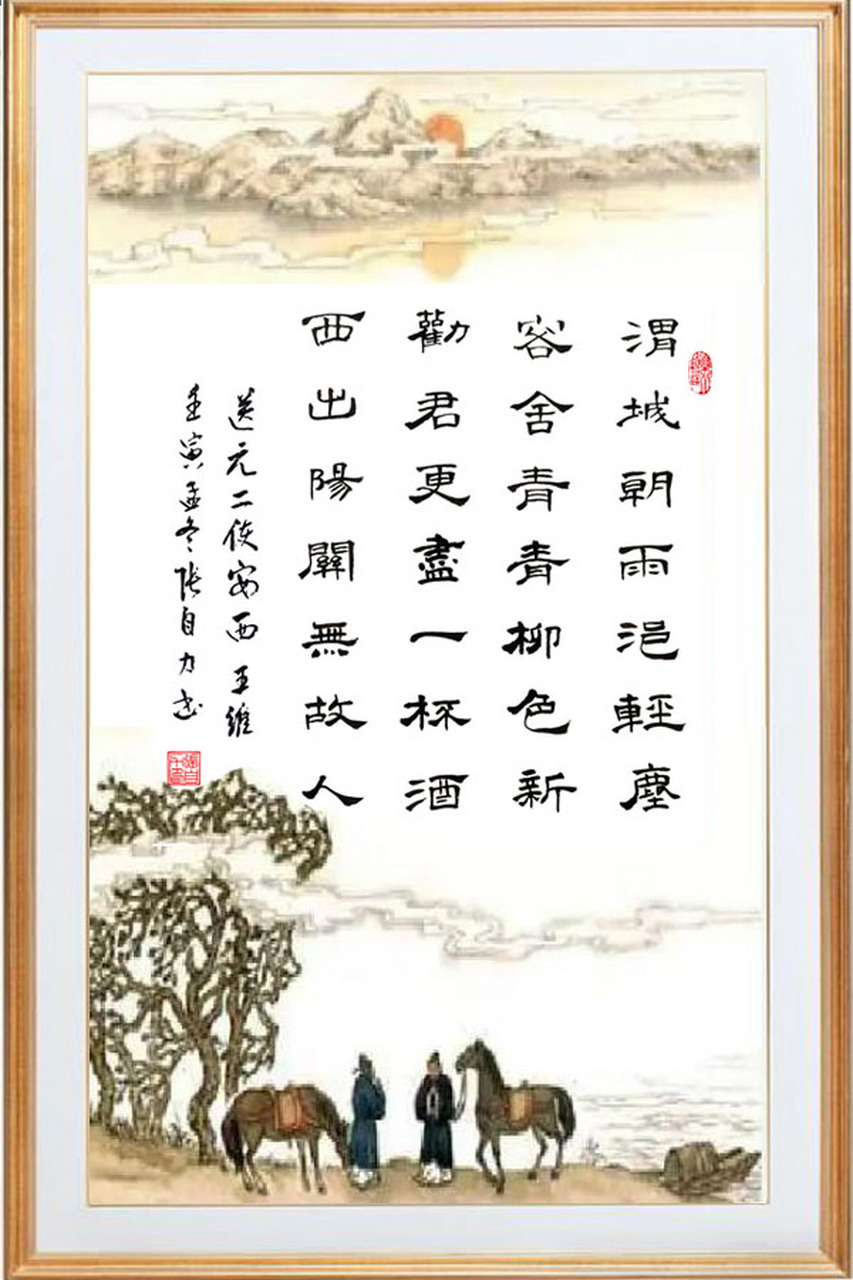 渭城朝雨浥輕塵
客舍青青柳色新
勸君更盡一杯酒
西出陽關無故人
送元二使安西 王維
壬寅孟冬張自力书